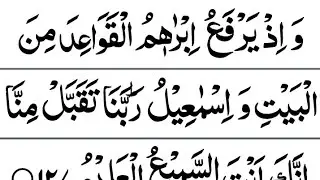 وَ اِذْ یَرْفَعُ اِبْرٰهٖمُ الْقَوَاعِدَ مِنَ
الْبَیْتِ وَ اِسْمٰعِیْلُ رَبَّنَا تَقَبَّلْ مِنَّا
اِنَّكَ اَنْتَ السَّمِیْعُ الْعَلِیْمُ ۝۱۲۷